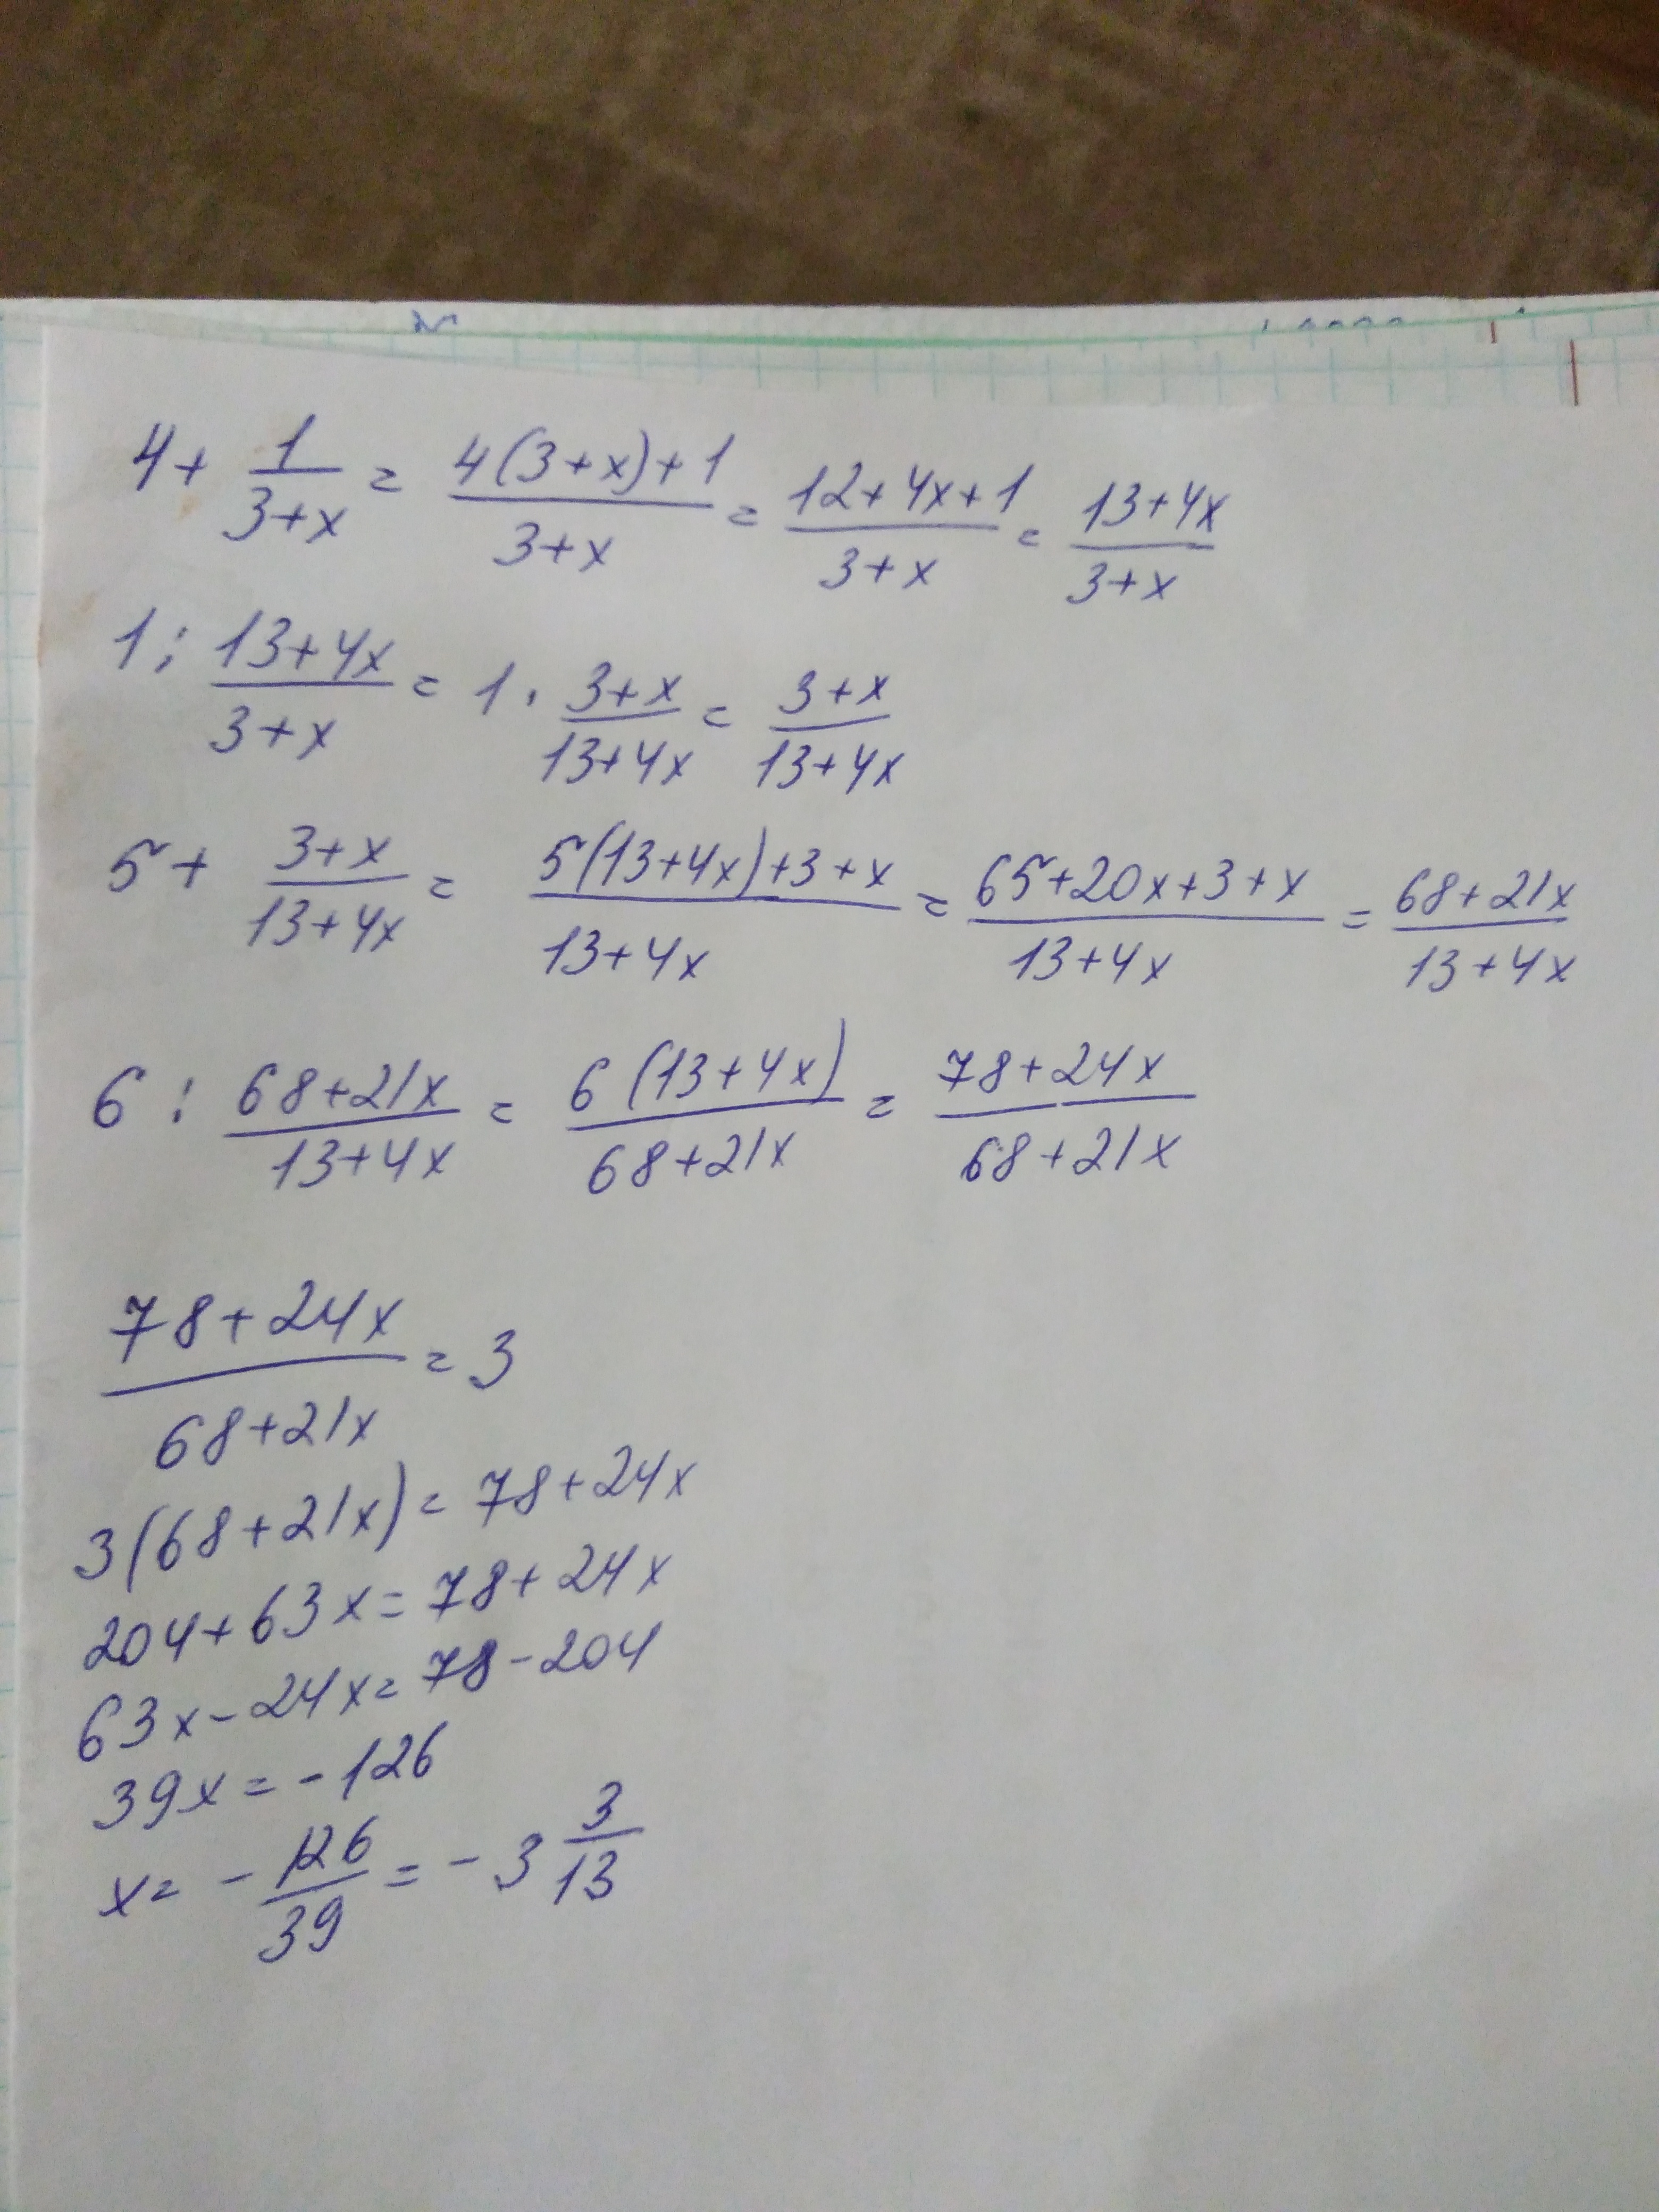 4 + 1/(3+x) = (4(3+x)+1)/(3+x) = (12+4x+1)/(3+x) = (13+4x)/(3+x)
1 : (13+4x)/(3+x) = 1 · (3+x)/(13+4x) = (3+x)/(13+4x)
5 + (3+x)/(13+4x) = (5(13+4x)+3+x)/(13+4x) = (65+20x+3+x)/(13+4x) = (68+21x)/(13+4x)
6 : (68+21x)/(13+4x) = (6(13+4x))/(68+21x) = (78+24x)/(68+21x)
(78+24x)/(68+21x) = 3
3(68+21x) = 78+24x
204+63x = 78+24x
63x-24x = 78-204
39x = -126
x = - 126/39 = -3 3/13